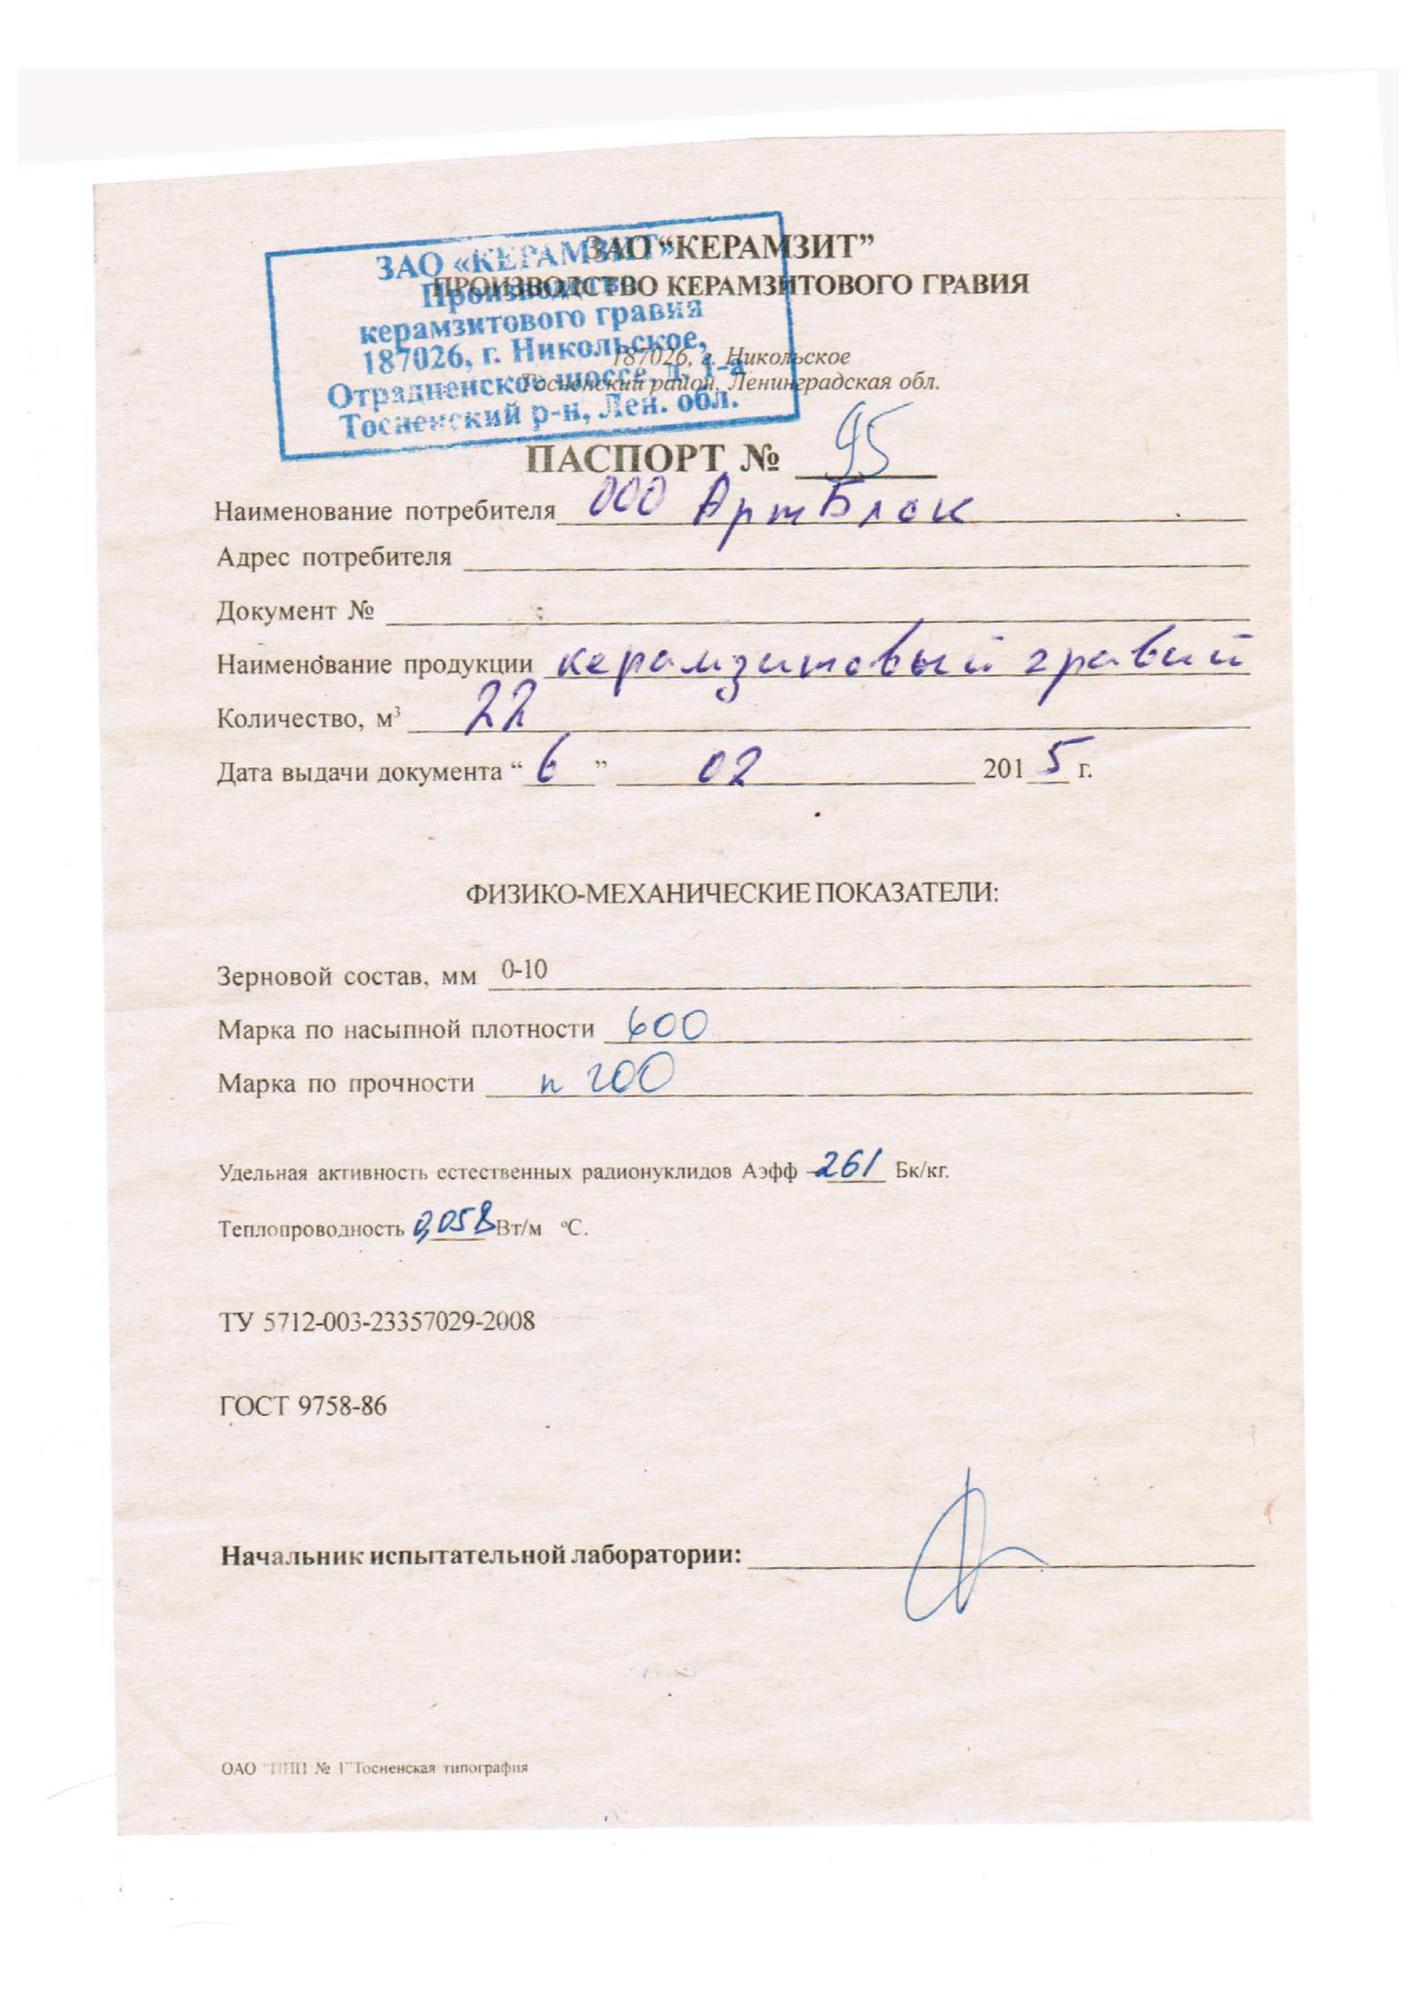 ЗАО “КЕРАМЗИТ”
ПРОИЗВОДСТВО КЕРАМЗИТОВОГО ГРАВИЯ
ЗАО «КЕРАМЗИТ»
Производство
керамзитового гравия
187026, г. Никольское,
Отрадненское шоссе, д. 1-а
Тосненский р-н, Лен. обл.
187026, г. Никольское
Тосненский район, Ленинградская обл.
ПАСПОРТ № 95
Наименование потребителя ООО АртБлок
Адрес потребителя
Документ №
Наименование продукции керамзитовый гравий
Количество, м³ 22
Дата выдачи документа “ 6 ” 02 2015 г.
ФИЗИКО-МЕХАНИЧЕСКИЕ ПОКАЗАТЕЛИ:
Зерновой состав, мм 0-10
Марка по насыпной плотности 600
Марка по прочности п 200
Удельная активность естественных радионуклидов Аэфф – 261 Бк/кг.
Теплопроводность 0,058 Вт/м °С.
ТУ 5712-003-23357029-2008
ГОСТ 9758-86
Начальник испытательной лаборатории:
ОАО № 1 Тосненская типография